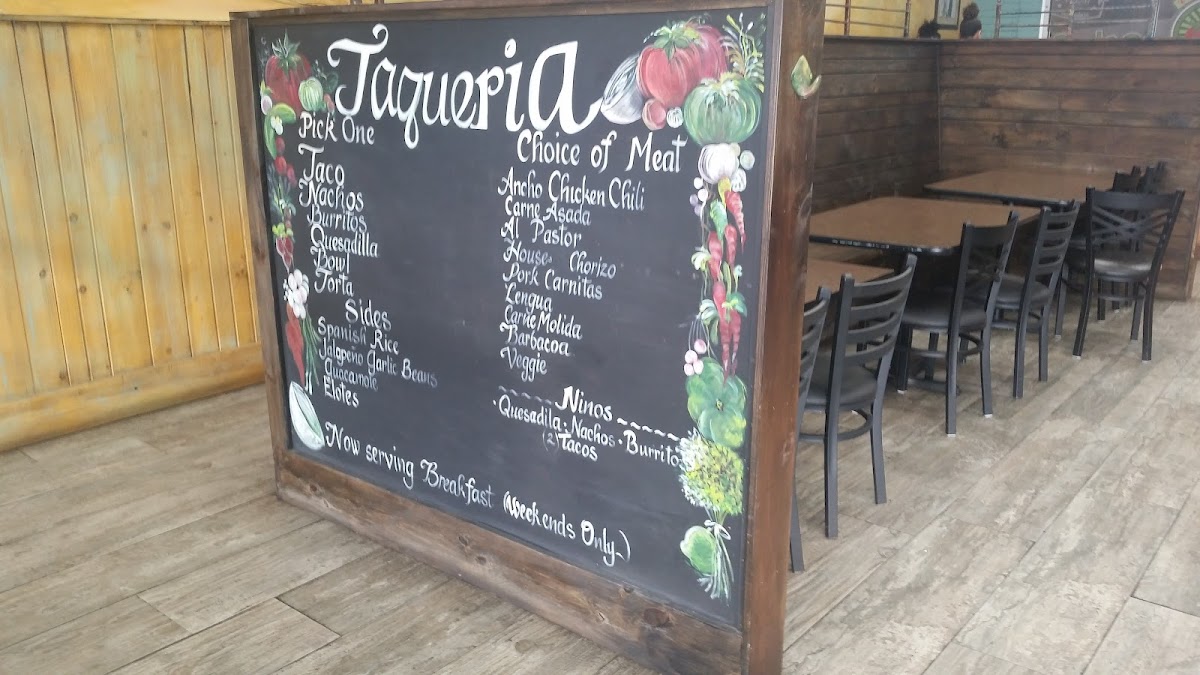 Taqueria
Pick One
Taco
Nachos
Burritos
Quesadilla
Bowl
Torta
Sides
Spanish Rice
Jalapeño Garlic Beans
Guacamole
Elotes
Choice of Meat
Ancho Chicken Chili
Carne Asada
Al Pastor
House Chorizo
Pork Carnitas
Lengua
Carne Molida
Barbacoa
Veggie
Ninos
·Quesadila·Nachos·Burrito
(2) Tacos
Now serving Breakfast (Weekends Only)